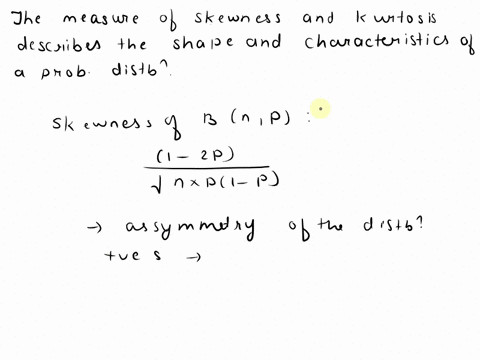 The measure of skewness and kurtosis
describes the shape and characteristics of
a prob. distbⁿ.
Skewness of B (n, p) :
(1 - 2p)
√ n × p (1 - p)
→ assymmetry of the distbⁿ
+ve s →